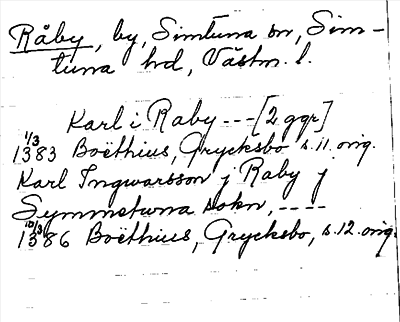 Råby, by, Simtuna sn, Sim-
tuna hd, Västm. l.
Karl i Raby --- [2 ggr]
1/3 1383 Boëthius, Grycksbo s. 11. orig.
Karl Ingwarsson j Raby j
Symmetuna sokn, ----
10/3 1386 Boëthius, Grycksbo, s. 12. orig.